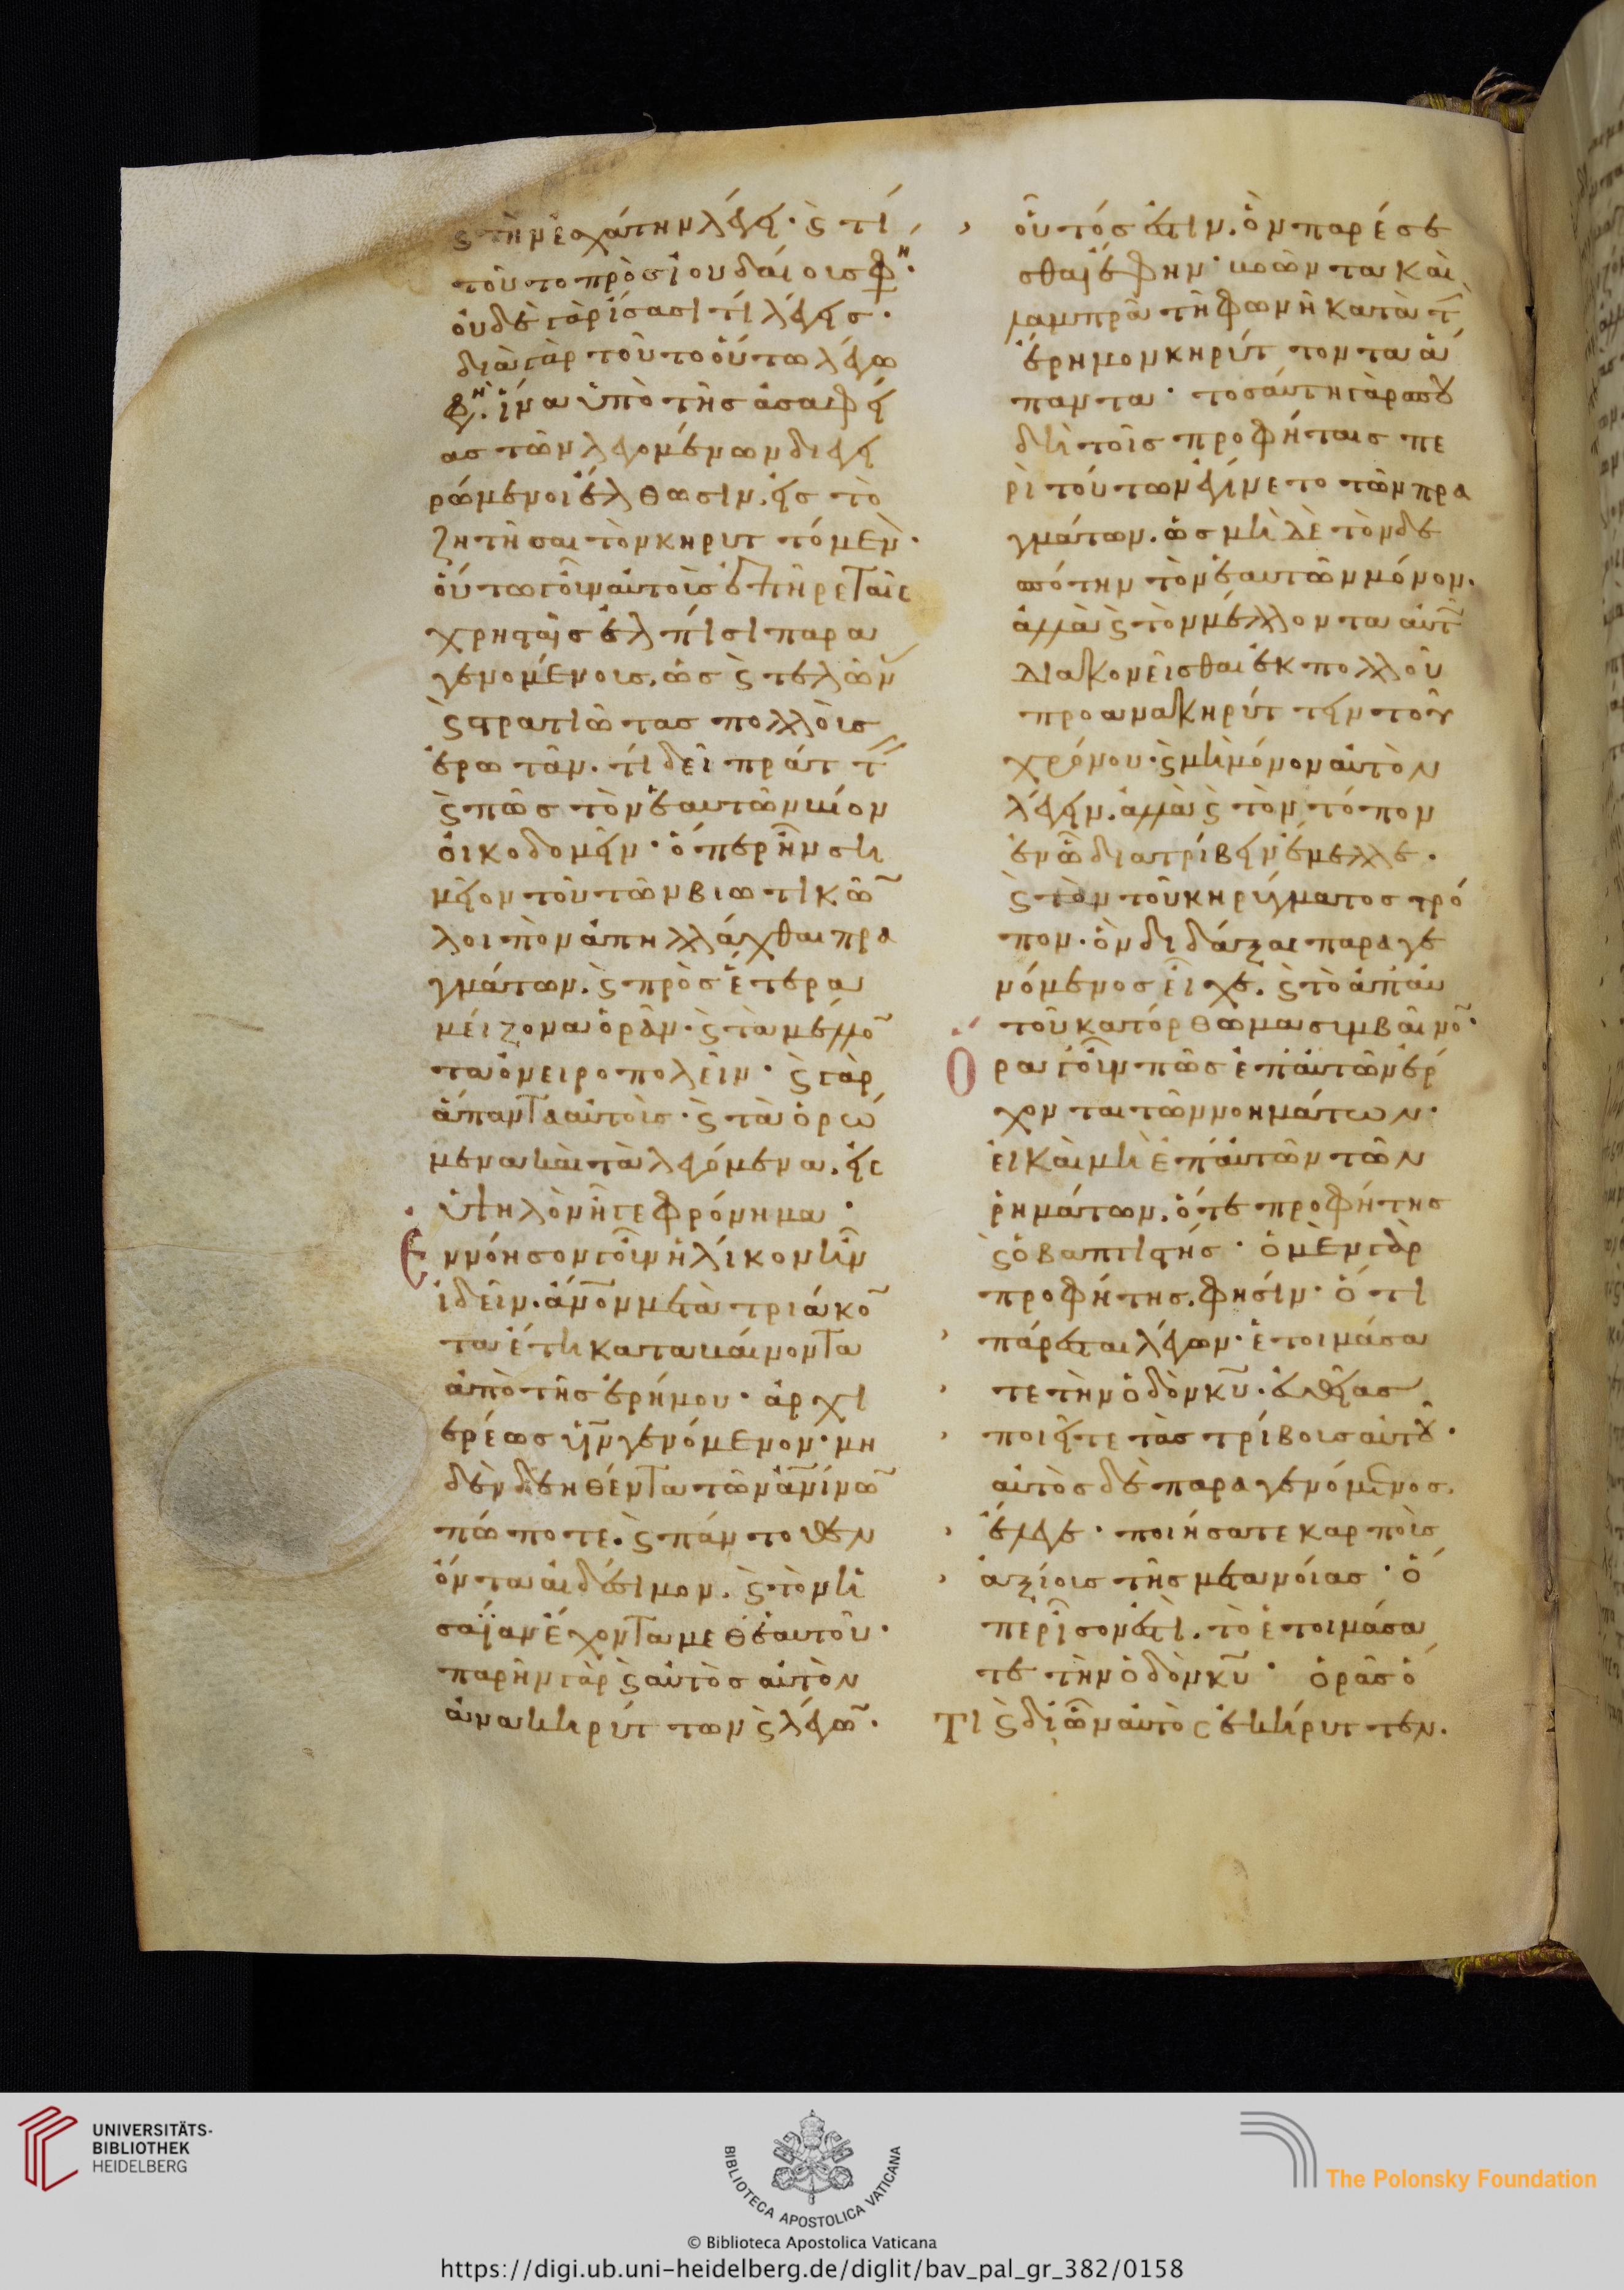 ϛ τὴν ἐσχάτην λέγει· ϛ τί
τοῦτο πρὸσ ἰουδαίουσ φη·
οὐδὲ γὰρ ἴσασι τί λέγεισ·
διὰ γὰρ τοῦτο οὕτω λέγω
φη. ἵνα ὑπὸ τῆσ ἀσαφεί
ασ τῶν λεγομένων διεγει
ρόμενοι ἔλθωσιν, εἰσ τὸ
ζητῆσαι τὸν κηρυττόμενον·
οὕτω γοῦν αὐτοὺσ ἐπῆρε ταῖσ
χρησταῖσ ἐλπίσι παρα
γενομένουσ, ὡσ ϛ τελών
ϛ στρατιώτασ πολλοὺσ
ἐρωτᾶν. τί δεῖ πράττ
ϛ πῶσ τὸν ἑαυτῶν βίον
οἰκοδομεῖν· ὅπερ ἦν ση
μεῖον τοῦ τῶν βιωτικῶ
λοιπὸν ἀπηλλάχθαι πρα
γμάτων. ϛ πρὸσ ἕτερα
μείζονα ὁρᾶν· ϛ τὰ μέλλο
τα ὀνειροπολεῖν· ϛ γὰρ
ἅπαντα αὐτοὺσ· ϛ τὰ ὁρώ
μενα καὶ τὰ λεγόμενα. εἰσ
ὑψηλὸν ἦγε φρόνημα·
Ἐννόησον γοῦν ἡλίκον ἦν
ἰδεῖν. ἄνον μετὰ τριάκο
τα ἔτη καταβαίνοντα
ἀπὸ τῆσ ἐρήμου· ἀρχι
ερέωσ υν γενόμενον· μη
δὲν δεηθέντα τῶν ἀνίνω
πώποτε. ϛ πάντοθεν
ὄντα αἰδέσιμον. ϛ τὸν ἡ
σαΐαν ἔχοντα μεθ ἑαυτοῦ·
παρῆν γὰρ ϛ αὐτὸσ αὐτὸν
ἀνακηρύττων ϛ λέγω·
οὗτόσ ἐστιν. ὃν παρέσε
σθαι ἔφην· βοῶντα καὶ
λαμπρᾶ τῆ φωνῆ κατὰ τ
ἔρημον κηρύττοντα ἅ
παντα· τοσαύτη γὰρ σπου
δὴ τοῖσ προφήταισ πε
ρὶ τούτων ἐγίνετο τῶν πρα
γμάτων. ὡσ μὴ τὸν δε
σπότην τὸν ἑαυτῶν μόνον.
ἀλλὰ ϛ τὸν μέλλοντα αὐτ
διακονεῖσθαι ἐκ πολλοῦ
προανακηρύττειν τοῦ
χρόνου· ϛ μὴ μόνον αὐτὸν
λέγειν. ἀλλὰ ϛ τὸν τόπον
ἐν ῶ διατρίβειν ἔμελλε.
ϛ τὸν τοῦ κηρύγματοσ τρό
πον. ὃν διδάξαι παραγε
νόμενοσ εἶχε. ϛ τὸ ἀπ αυ
τοῦ κατόρθωμα συμβαῖνο·
Ὅρα γοῦν πῶσ ἐπ αὐτῶν ἔρ
χονται τῶν νοημάτων·
εἰ καὶ μὴ ἐπ αὐτῶν τῶν
ῥημάτων. ὅ τε προφήτησ
ϛ ὁ βαπτιστήσ· ὁ μὲν γὰρ
προφήτησ. φησίν· ὅτι
πάρεσται λέγων· ἑτοιμάσα
τε τὴν ὁδὸν κυ. εὐθείασ
ποιεῖτε τὰσ τρίβουσ αὐτοῦ.
αὐτὸσ δὲ παραγενόμενοσ.
ἔλεγε· ποιήσατε καρποὺσ
ἀξίουσ τῆσ μετανοίασ· ὅ
περ ἴσον ἐστὶ. τὸ ἑτοιμάσα
τε τὴν ὁδὸν κυ· ὁρᾶσ ὅ
τι ϛ δι ὧν αὐτὸσ ἐκήρυττεν.
UNIVERSITÄTS-
BIBLIOTHEK
HEIDELBERG
BIBLIOTECA APOSTOLICA VATICANA
The Polonsky Foundation
© Biblioteca Apostolica Vaticana
https://digi.ub.uni-heidelberg.de/diglit/bav_pal_gr_382/0158